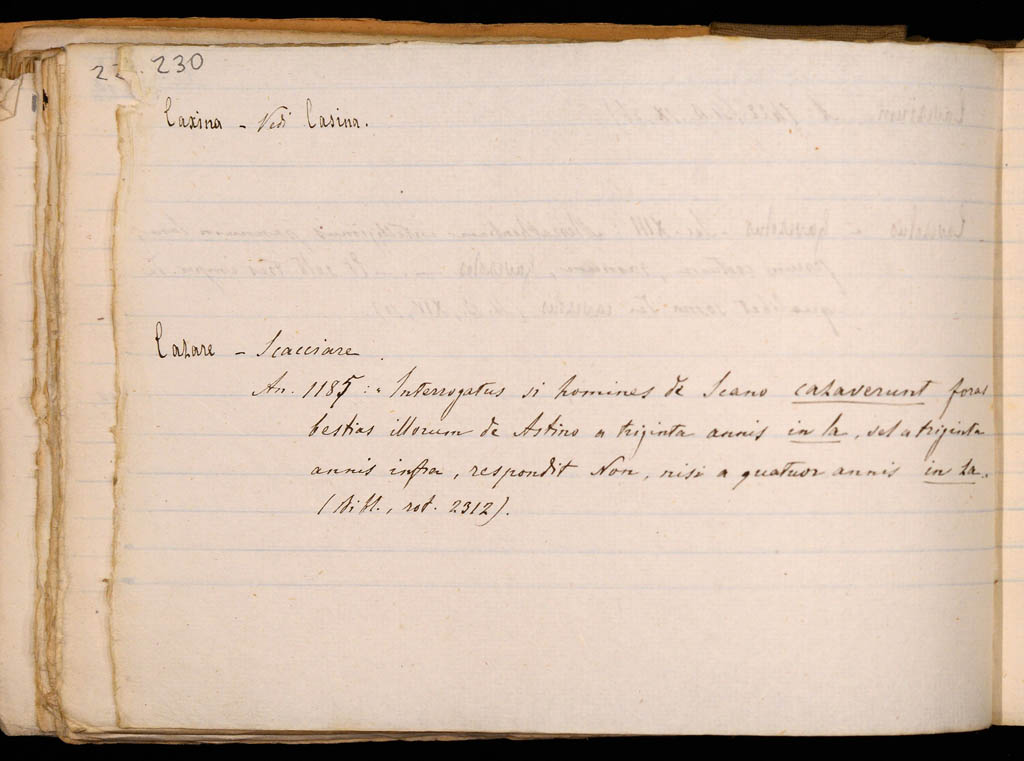 230
Caxina - Vedi Casina.
Cazare - Scacciare.
An. 1185: "Interrogatus si homines de Scano cazaverunt foras
bestias illorum de Astino a triginta annis in za, vel a triginta
annis infra, respondit Non, nisi a quatuor annis in za.
(Bibl., rot. 2312).